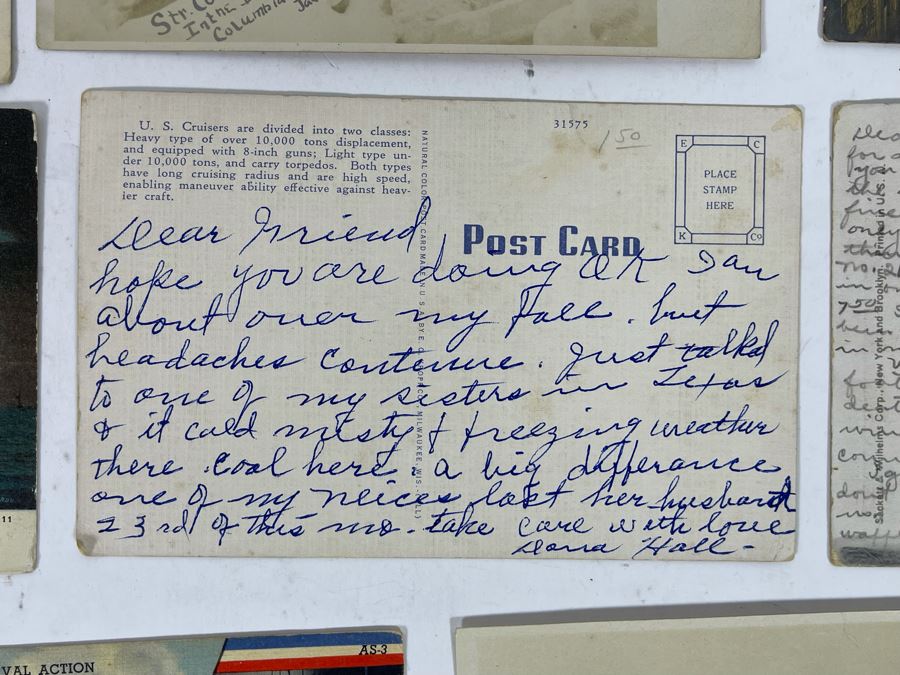 Str. Co
In the
Columbia
U. S. Cruisers are divided into two classes:
Heavy type of over 10,000 tons displacement,
and equipped with 8-inch guns; Light type un-
der 10,000 tons, and carry torpedos. Both types
have long cruising radius and are high speed,
enabling maneuver ability effective against heav-
ier craft.
31575
1 50
E C
PLACE
STAMP
HERE
K Co
POST CARD
Dear Friend,
hope you are doing OK I am
about over my fall. but
headaches contenue. Just talkd
to one of my sisters in Texas
& it cold misty & freezing weather
there. cool here. a big differance
one of my Neices lost her husband
23rd of this mo. take care with love
Dona Hall -
11
VAL ACTION
AS-3
Wilhelms Corp., New York and Brooklyn. Printed in U.S.